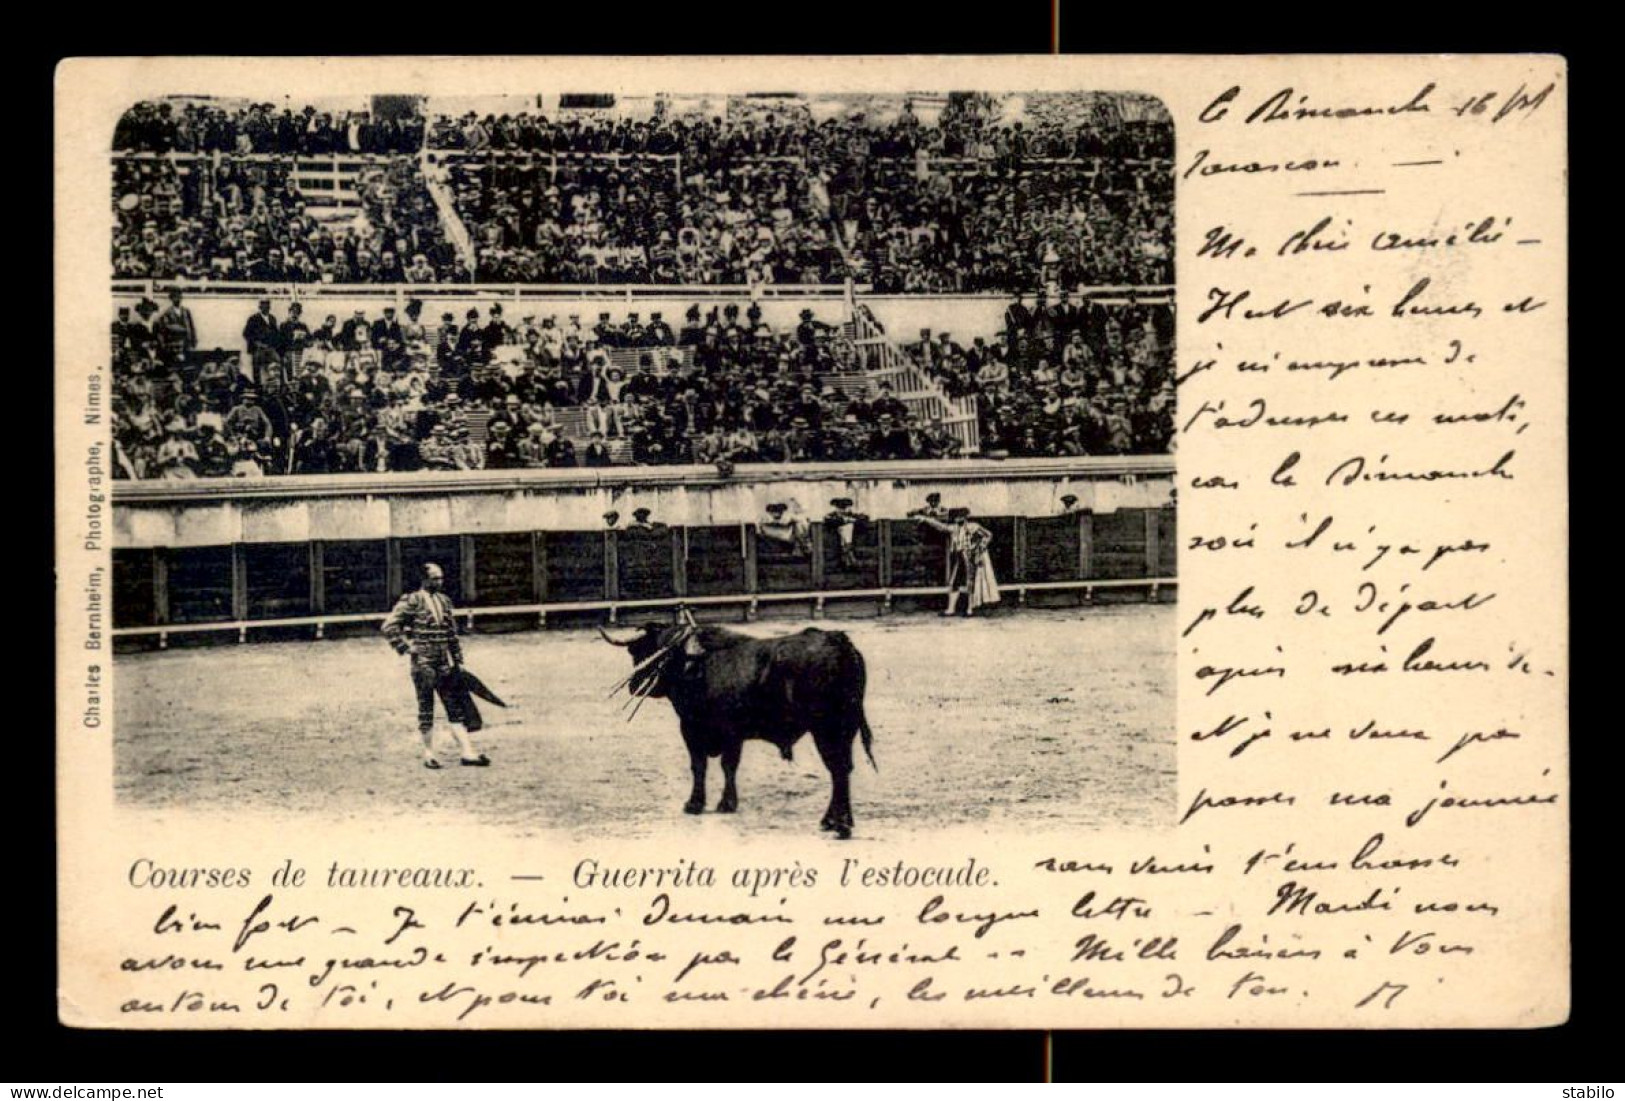 Charles Bernheim, Photographe, Nimes.
Courses de taureaux. — Guerrita après l'estocade.
le Dimanche 16
Tarascon. —
Ma chérie Amélie —
Huit six heures et
je m'empresse de
t'adresser ces mots,
car le Dimanche
soir il n'y a pas
plus de départ
après six heures
et je ne veux pas
passer ma journée
sans venir t'embrasser
bien fort — Je t'écrirai demain une longue lettre — Mardi nous
avons une grande inspection par le Général .. Mille baisers à Vous
autour de toi, et pour toi ma chérie, les meilleurs de ton. M
stabilo